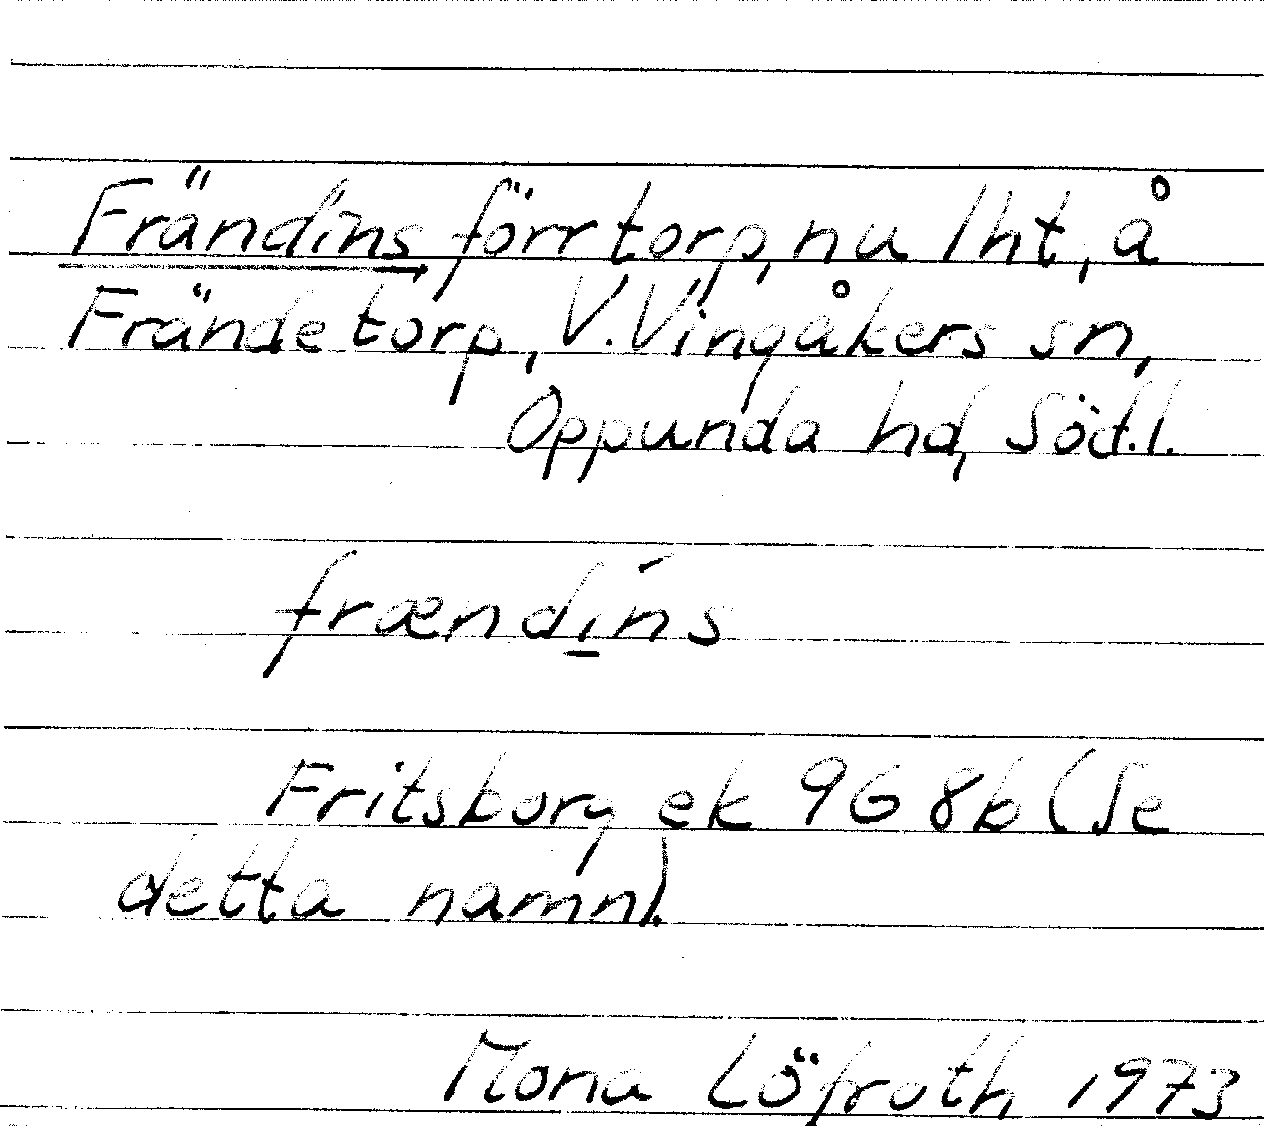 Frändins förr torp, nu lht, å
Frändetorp, V. Vingåkers sn,
Oppunda hd, Södl.
frændins
Fritsborg ek 9G 8b (Se
detta namn).
Mona Löfroth 1973